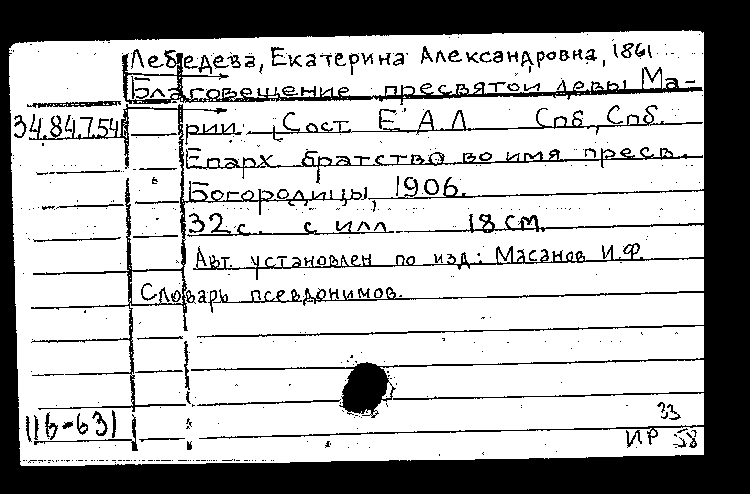 Лебедева, Екатерина Александровна, 1861
Благовещение пресвятой девы Ма-
34.84.7.54
рии. Сост. Е. А. Л. Спб., Спб.
Епарх. братство во имя пресв.
Богородицы, 1906.
32 с. с илл. 18 см.
Авт. установлен по изд.: Масанов И.Ф.
Словарь псевдонимов.
(16-63)
33
ИР 58